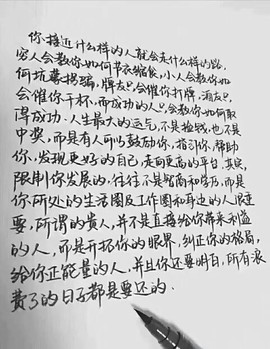 你接近什么样的人就会走什么样的路,
穷人会教你如何节衣缩食,小人会教你如
何坑蒙拐骗,牌友只会催你打牌,酒友只
会催你干杯,而成功的人只会教你如何取
得成功.人生最大的运气,不是捡钱,也不是
中奖,而是有人可以鼓励你,指引你,帮助
你,发现更好的自己,走向更高的平台,其实,
限制你发展的,往往不是智商和学历,而是
你所处的生活圈及工作圈和身边的人很重
要,所谓的贵人,并不是直接给你带来利益
的人,而是开拓你的眼界,纠正你的格局,
给你正能量的人,并且你还要明白,所有浪
费了的日子都是要还的.